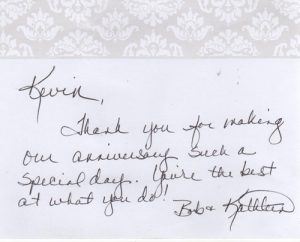 Kevin,
Thank you for making
our anniversary such a
special day. You're the best
at what you do!
Bob & Kathleen